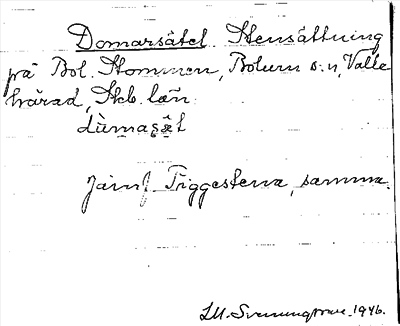 Domarsätet Stensättning
på Bol. Stommen, Bolum s:n, Valle
härad, Skb. län.
dùmasä̀t
Jämf. Tiggestena, samma.
1946.